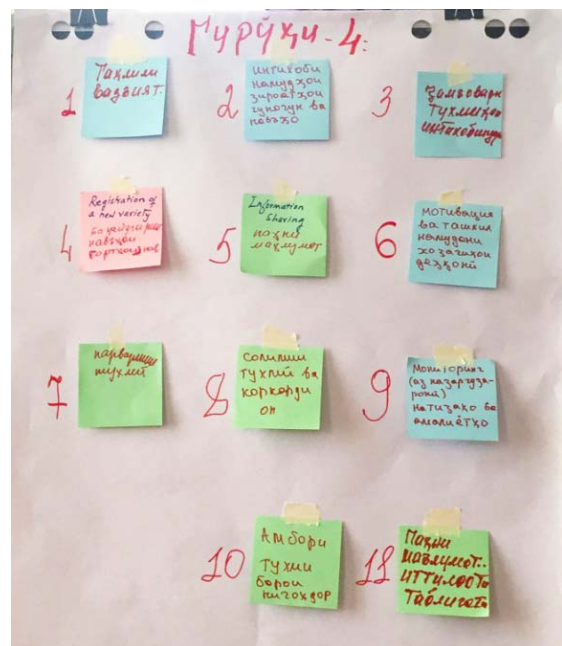 Гурӯҳи-4:
1
Таҳлили
вазъият.
2
интихоби
намудҳои
зироатҳои
гуногун ва
навъҳо
3
Ҷамъоварӣ
Тухмиҳои
интихобшуда
4
Registration of
a new variety
Ба қайдгирии
навъҳои
нав
5
Information
Sharing
паҳни
маълумот
6
мотивация
ва ташкил
намудани
хоҷагиҳои
деҳқонӣ
7
парвариши
тухмӣ
8
солишши
тухмӣ ва
коркарди
он
9
Мониторинг
(аз назаргуза-
рона)
натиҷаҳо ва
амалиётҳо
10
Амбори
тухми
барои
нигоҳдор
11
Паҳни
маълумот..
иттилоот
Таблигот